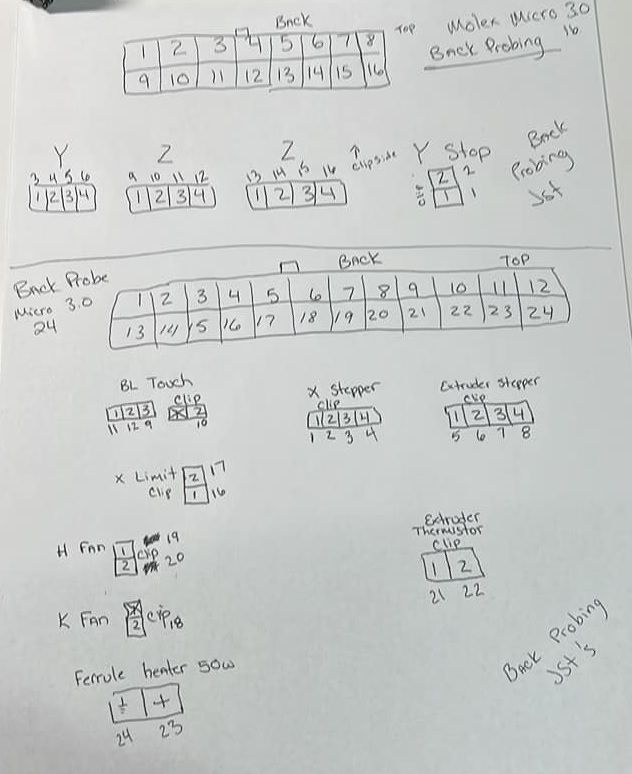 Back
Top
Molex Micro 3.0
16
Back Probing
1 2 3 4 5 6 7 8
9 10 11 12 13 14 15 16
Y
3 4 5 6
1 2 3 4
Z
9 10 11 12
1 2 3 4
Z
13 14 15 16
1 2 3 4
↑
clipside
Y Stop
2 2
1 1
Back
Probing
JST
Back Probe
Micro 3.0
24
Back
Top
1 2 3 4 5 6 7 8 9 10 11 12
13 14 15 16 17 18 19 20 21 22 23 24
BL Touch
1 2 3
11 12 9
Clip
X 2
10
X Stepper
Clip
1 2 3 4
1 2 3 4
Extruder Stepper
Clip
1 2 3 4
5 6 7 8
X Limit
Clip
2 17
1 16
H Fan
1 19
clip
2 20
K Fan
X
2
clip 18
Extruder
Thermistor
Clip
1 2
21 22
Ferrule heater 50w
+
24 23
Back Probing
JST's